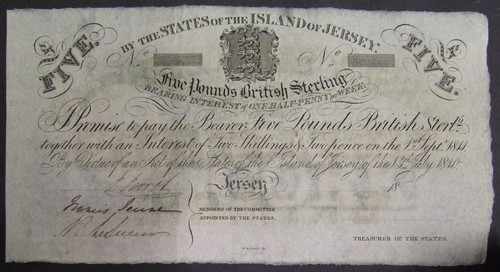 BY THE STATES OF THE ISLAND OF JERSEY.
£5 FIVE. £5 FIVE.
No No
Five Pounds British Sterling
BEARING INTEREST of ONE HALF-PENNY per WEEK.
I Promise to pay the Bearer Five Pounds British Sterlg.
together with an Interest of Two Shillings & Two pence on the 1st Septr. 1841
By Virtue of an Act of the States of the Island of Jersey of the 1st July 1840
Jersey 18
MEMBERS OF THE COMMITTEE
APPOINTED BY THE STATES.
TREASURER OF THE STATES.